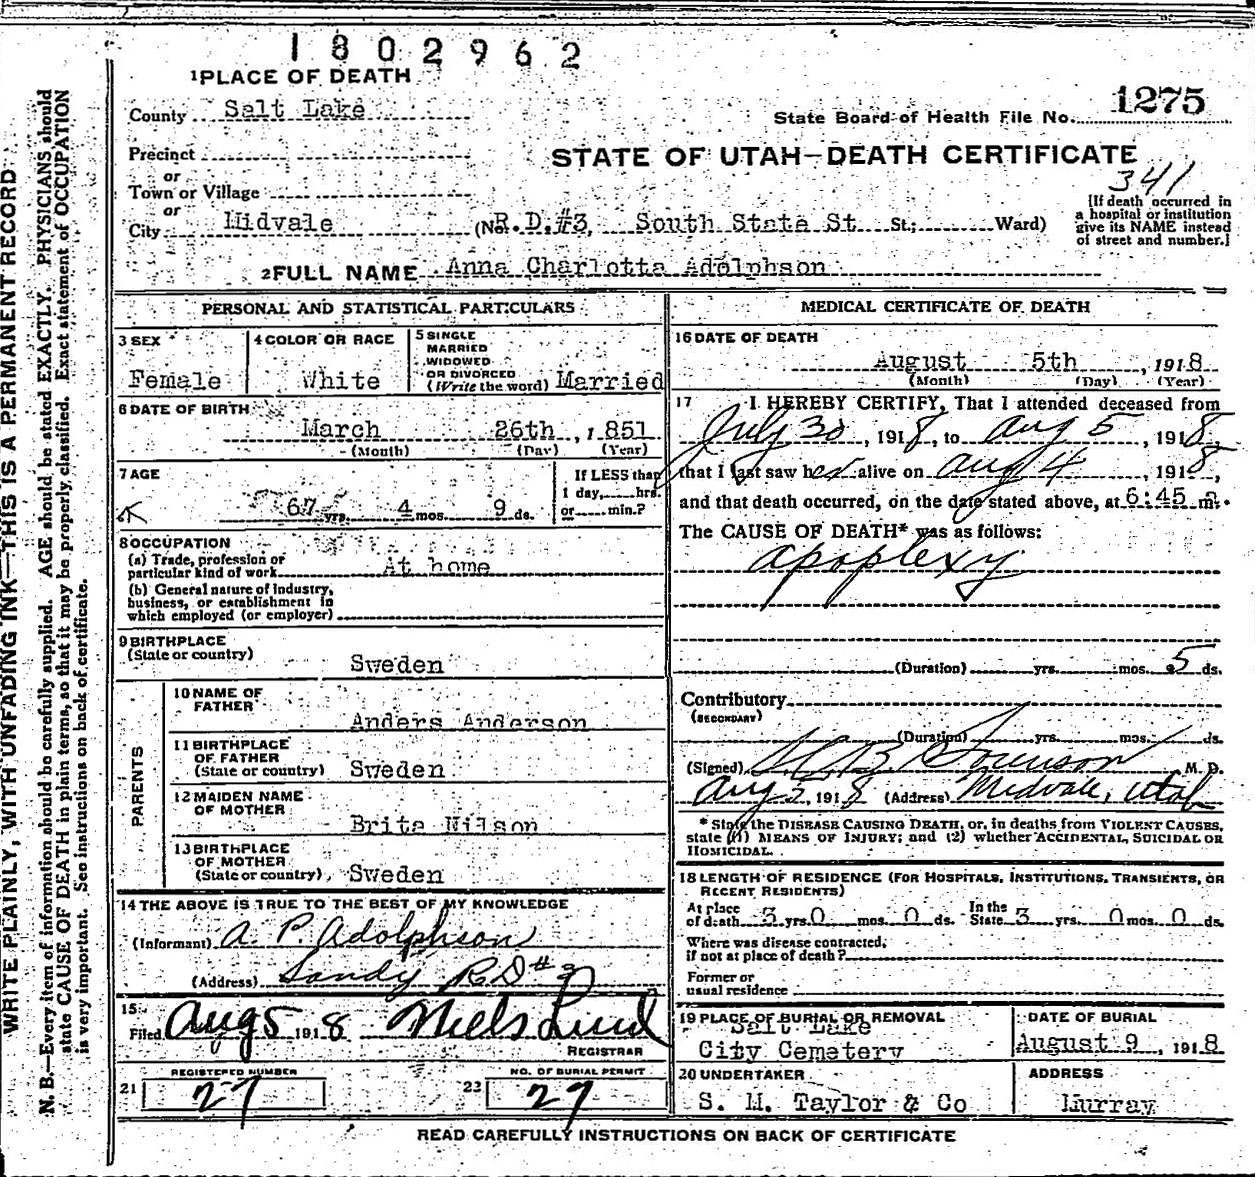 1802962
1 PLACE OF DEATH
County Salt Lake
State Board of Health File No. 1275
Precinct
STATE OF UTAH—DEATH CERTIFICATE
or
Town or Village
341
or
City Midvale (No. R.D.#3, South State St St.; Ward)
[If death occurred in
a hospital or institution
give its NAME instead
of street and number.]
2 FULL NAME Anna Charlotta Adolphson
PERSONAL AND STATISTICAL PARTICULARS
3 SEX
Female
4 COLOR OR RACE
White
5 SINGLE
MARRIED
WIDOWED
OR DIVORCED
(Write the word) Married
6 DATE OF BIRTH
March 26th, 1851
(Month) (Day) (Year)
7 AGE
67 yrs. 4 mos. 9 ds.
If LESS than
1 day, hrs.
or min.?
8 OCCUPATION
(a) Trade, profession or
particular kind of work At home
(b) General nature of industry,
business, or establishment in
which employed (or employer)
9 BIRTHPLACE
(State or country) Sweden
PARENTS
10 NAME OF
FATHER
Anders Anderson
11 BIRTHPLACE
OF FATHER
(State or country) Sweden
12 MAIDEN NAME
OF MOTHER
Brita Nilson
13 BIRTHPLACE
OF MOTHER
(State or country) Sweden
14 THE ABOVE IS TRUE TO THE BEST OF MY KNOWLEDGE
(Informant) A. P. Adolphson
(Address) Sandy R D #3
15
Filed Aug 5 1918 Niels Lind
REGISTRAR
REGISTERED NUMBER
21 27
NO. OF BURIAL PERMIT
22 27
MEDICAL CERTIFICATE OF DEATH
16 DATE OF DEATH
August 5th, 1918
(Month) (Day) (Year)
17 I HEREBY CERTIFY, That I attended deceased from
July 30, 1918, to Aug 5, 1918,
that I last saw her alive on Aug 4, 1918,
and that death occurred, on the date stated above, at 6:45 a. m.
The CAUSE OF DEATH* was as follows:
Apoplexy
(Duration) yrs. mos. 5 ds.
Contributory
(SECONDARY)
(Duration) yrs. mos. ds.
(Signed) M. D.
Aug 5, 1918 (Address) Midvale, Utah
* State the DISEASE CAUSING DEATH, or, in deaths from VIOLENT CAUSES,
state (1) MEANS OF INJURY; and (2) whether ACCIDENTAL, SUICIDAL OR
HOMICIDAL.
18 LENGTH OF RESIDENCE (FOR HOSPITALS, INSTITUTIONS, TRANSIENTS, OR
RECENT RESIDENTS)
At place
of death 3 yrs. 0 mos. 0 ds. In the
State 3 yrs. 0 mos. 0 ds.
Where was disease contracted,
if not at place of death?
Former or
usual residence
19 PLACE OF BURIAL OR REMOVAL
Salt Lake
City Cemetery
DATE OF BURIAL
August 9, 1918
20 UNDERTAKER
S. M. Taylor & Co
ADDRESS
Murray
READ CAREFULLY INSTRUCTIONS ON BACK OF CERTIFICATE
WRITE PLAINLY, WITH UNFADING INK—THIS IS A PERMANENT RECORD
N. B.—Every item of information should be carefully supplied. AGE should be stated EXACTLY. PHYSICIANS should
state CAUSE OF DEATH in plain terms, so that it may be properly classified. Exact statement of OCCUPATION
is very important. See instructions on back of certificate.